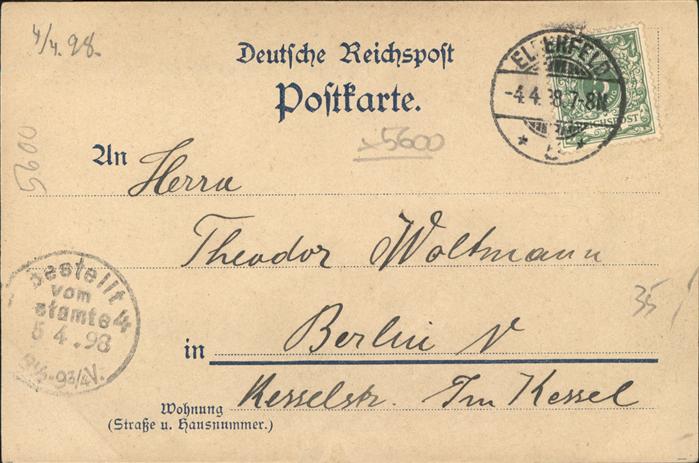 4/4.98.
Deutsche Reichspost
Postkarte.
ELBERFELD
-4.4.98.7-8N
* 5 *
REICHSPOST
5600
5600
An Herrn
Theodor Woltmann
Bestellt
vom
Postamte 4
5 4.98
35
in Berlin N
Kesselstr. Im Kessel
Wohnung
(Straße u. Hausnummer.)